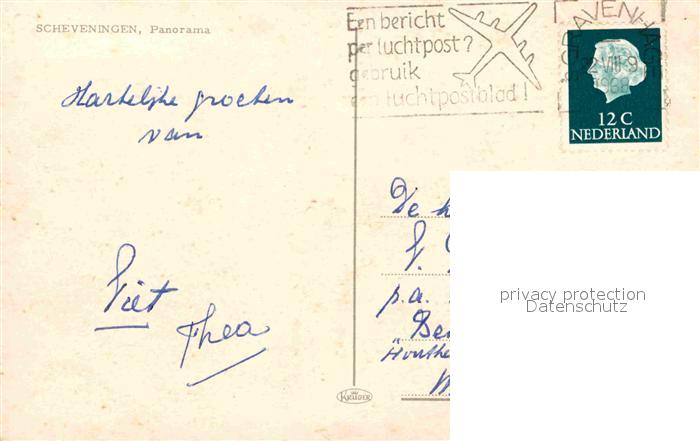 SCHEVENINGEN, Panorama
Een bericht
per luchtpost?
gebruik
een luchtpostblad!
'S-GRAVENHAGE
VIII-9
1968
12 C
NEDERLAND
Hartelijke groeten
van
Piet
Thea
De
p.a.
privacy protection
Datenschutz
KRÜGER